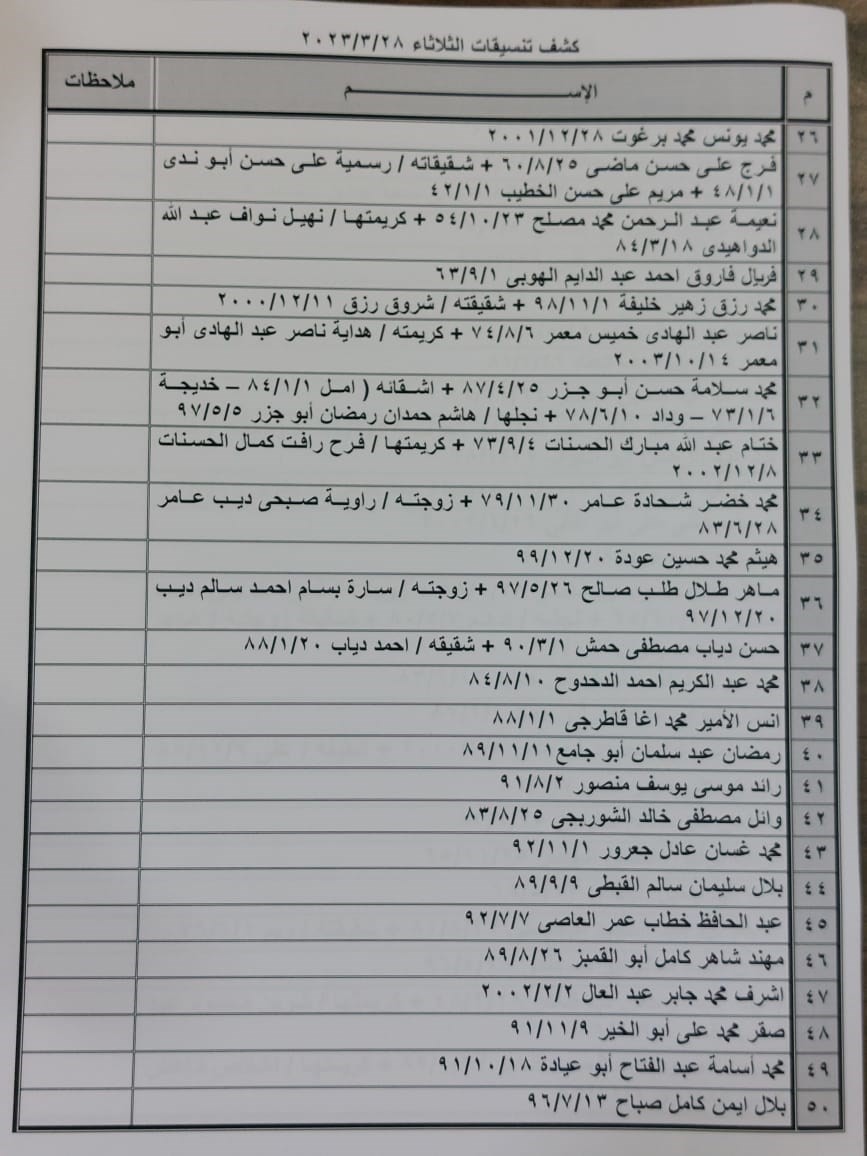 كشف تنسيقات الثلاثاء ٢٠٢٣/٣/٢٨
م الإســـــــم ملاحظات
٢٦ محمد يونس محمد برغوت ٢٠٠١/١٢/٢٨
٢٧ فرج على حسن ماضى ٦٠/٨/٢٥ + شقيقاته / رسمية على حسن أبو ندى
٤٨/١/١ + مريم على حسن الخطيب ٤٢/١/١
٢٨ نعيمة عبد الرحمن محمد مصلح ٥٤/١٠/٢٣ + كريمتها / نهيل نواف عبد الله
الدواهيدى ٨٤/٣/١٨
٢٩ فريال فاروق احمد عبد الدايم الهوبى ٦٣/٩/١
٣٠ محمد رزق زهير خليفة ٩٨/١١/١ + شقيقته / شروق رزق ٢٠٠٠/١٢/١١
٣١ ناصر عبد الهادى خميس معمر ٧٤/٨/٦ + كريمته / هداية ناصر عبد الهادى أبو
معمر ٢٠٠٣/١٠/١٤
٣٢ محمد سلامة حسن أبو جزر ٨٧/٤/٢٥ + اشقائه ( امل ٨٤/١/١ – خديجة
٧٣/١/٦ – وداد ٧٨/٦/١٠ + نجلها / هاشم حمدان رمضان أبو جزر ٩٧/٥/٥
٣٣ ختام عبد الله مبارك الحسنات ٧٣/٩/٤ + كريمتها / فرح رافت كمال الحسنات
٢٠٠٢/١٢/٨
٣٤ محمد خضر شحادة عامر ٧٩/١١/٣٠ + زوجته / راوية صبحى ديب عامر
٨٣/٦/٢٨
٣٥ هيثم محمد حسين عودة ٩٩/١٢/٢٠
٣٦ ماهر طلال طلب صالح ٩٧/٥/٢٦ + زوجته / سارة بسام احمد سالم ديب
٩٧/١٢/٢٠
٣٧ حسن دياب مصطفى حمش ٩٠/٣/١ + شقيقه / احمد دياب ٨٨/١/٢٠
٣٨ محمد عبد الكريم احمد الدحدوح ٨٤/٨/١٠
٣٩ انس الأمير محمد اغا قاطرجى ٨٨/١/١
٤٠ رمضان عبد سلمان أبو جامع ٨٩/١١/١١
٤١ رائد موسى يوسف منصور ٩١/٨/٢
٤٢ وائل مصطفى خالد الشوربجى ٨٣/٨/٢٥
٤٣ محمد غسان عادل جعرور ٩٢/١١/١
٤٤ بلال سليمان سالم القبطى ٨٩/٩/٩
٤٥ عبد الحافظ خطاب عمر العاصى ٩٢/٧/٧
٤٦ مهند شاهر كامل أبو القمبز ٨٩/٨/٢٦
٤٧ اشرف محمد جابر عبد العال ٢٠٠٢/٢/٢
٤٨ صقر محمد على أبو الخير ٩١/١١/٩
٤٩ محمد أسامة عبد الفتاح أبو عيادة ٩١/١٠/١٨
٥٠ بلال ايمن كامل صباح ٩٦/٧/١٣